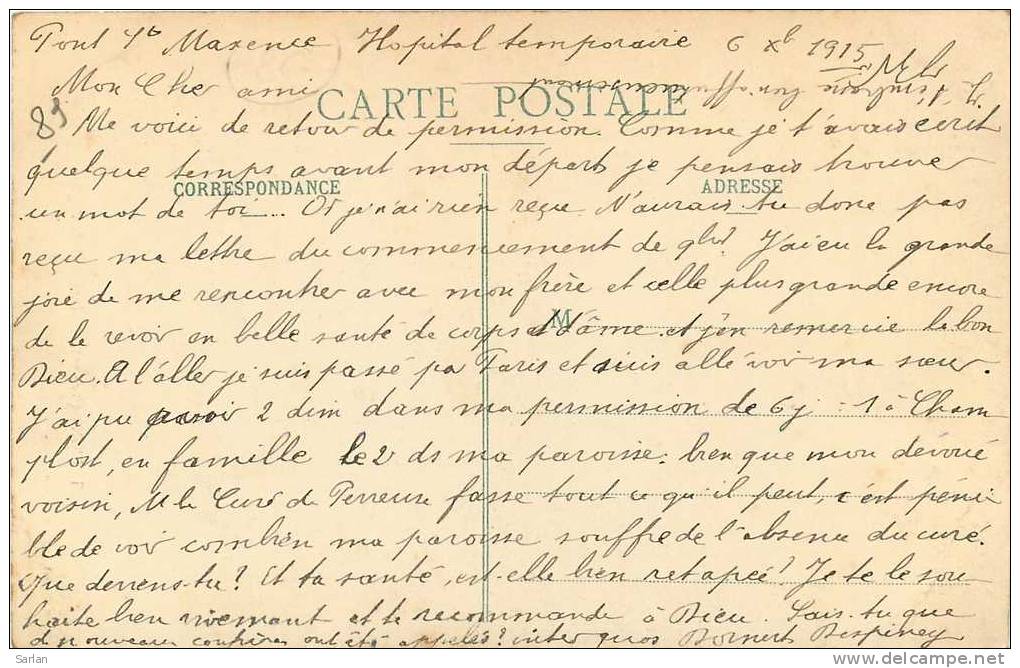 Pont Ste Maxence Hopital temporaire 6 Xb 1915
Mon Cher ami
CARTE POSTALE
89
Me voici de retour de permission. Comme je t'avais écrit
quelque temps avant mon départ je pensais trouver
CORRESPONDANCE ADRESSE
un mot de toi... Or je n'ai rien reçu. N'aurais-tu donc pas
reçu ma lettre du commencement de 9bre J'ai eu la grande
joie de me rencontrer avec mon frère et celle plus grande encore
M
de le revoir en belle santé de corps et d'âme et j'en remercie le bon
Dieu. A l'aller je suis passé par Paris et suis allé voir ma sœur.
J'ai pu avoir 2 dim dans ma permission de 6 j : 1 à Cham
plost, en famille le 2 ds ma paroisse. bien que mon dévoué
voisin, M le Curé de Perreuse fasse tout ce qu'il peut, c'est péni
ble de voir combien ma paroisse souffre de l'absence du curé.
Que deviens-tu? Et ta santé, est-elle bien retapée? Je te le sou
haite bien vivement et te recommande à Dieu. Sais-tu que
de nouveaux confrères ont été appelés? inter quos Bornert Bespiney
Delcampe
Sarlan Member of Delcampe.net